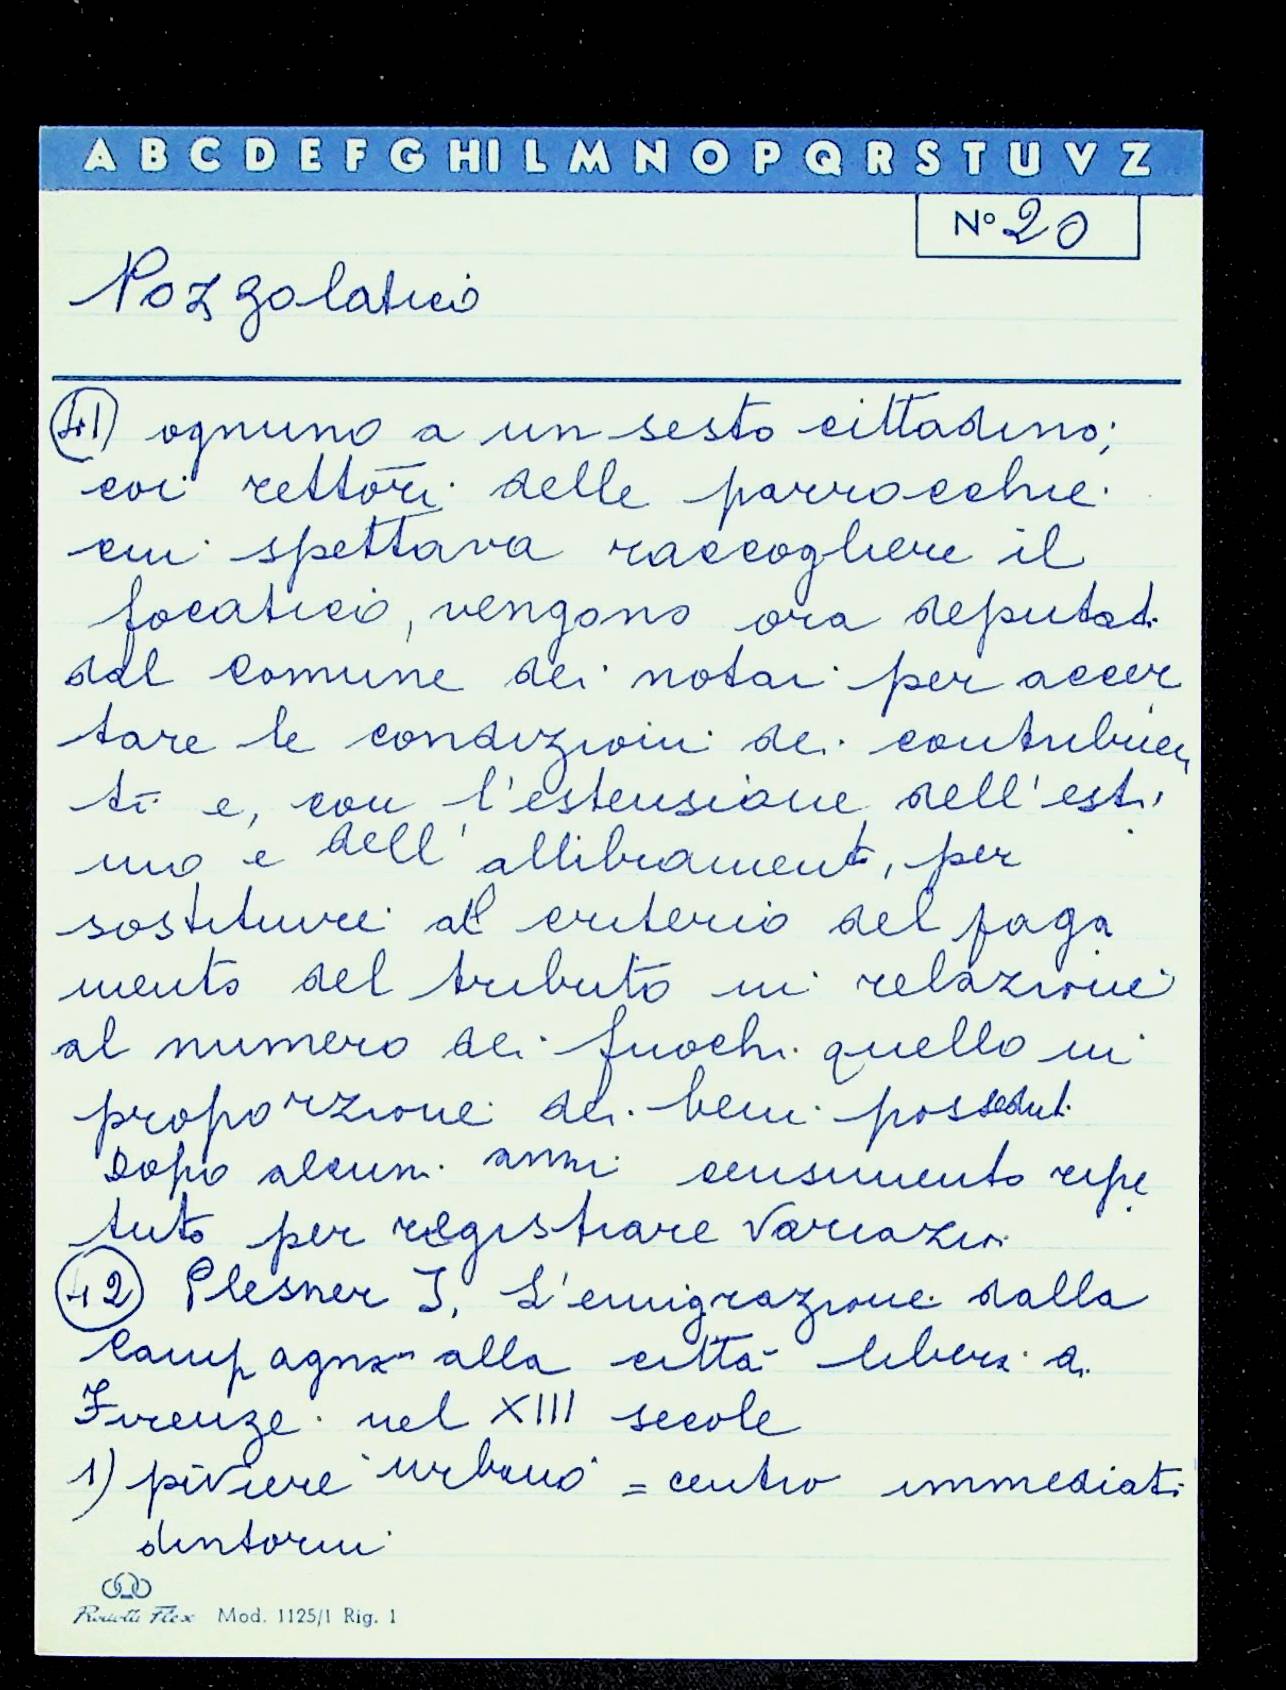 A B C D E F G HI L M N O P Q R S T U V Z
Nº 20
Pozzolatico
41) ognuno a un sesto cittadino;
coi rettori delle parrocchie
cui spettava raccogliere il
focatico, vengono ora deputati
dal comune dei notai per accer
tare le condizioni dei contribuen
ti e, con l'estensione dell'esti
mo e dell'allibramento, per
sostituire al criterio del paga
mento del tributo in relazione
al numero dei fuochi quello in
proporzione dei beni posseduti
Dopo alcuni anni censimento ripe
tuto per registrare variazioni
42) Plesner J, L'emigrazione dalla
Campagna alla città libera di
Firenze nel XIII secolo
1) piviere urbano = centro immediati
dintorni
Flex Mod. 1125/1 Rig. 1